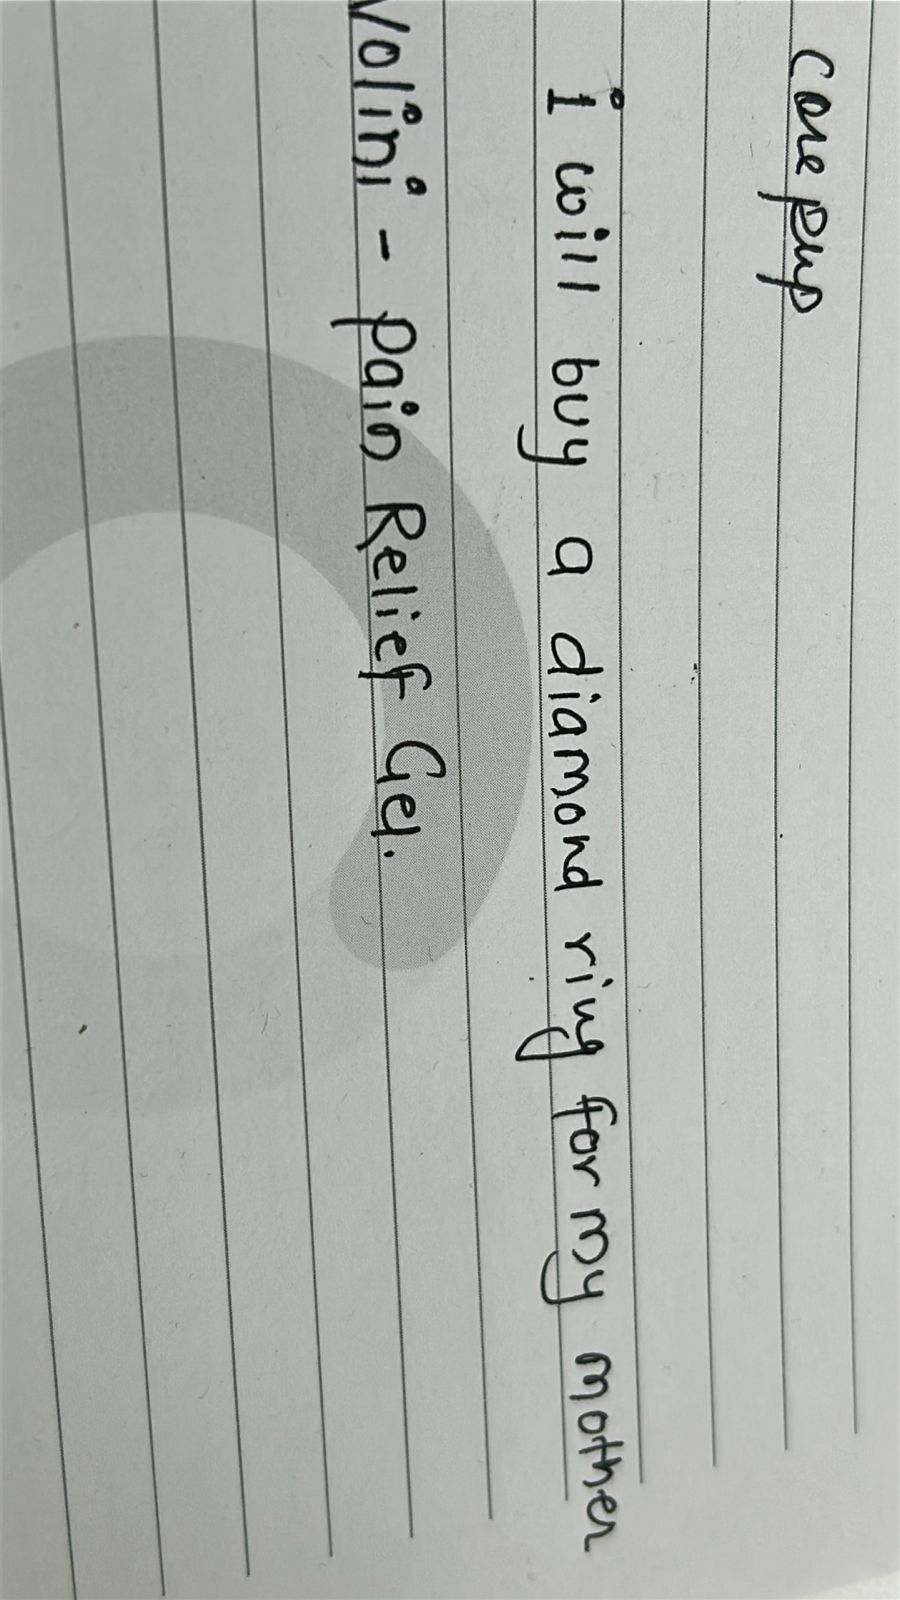 i will buy a diamond ring for my mother
Volini - Pain Relief Gel.